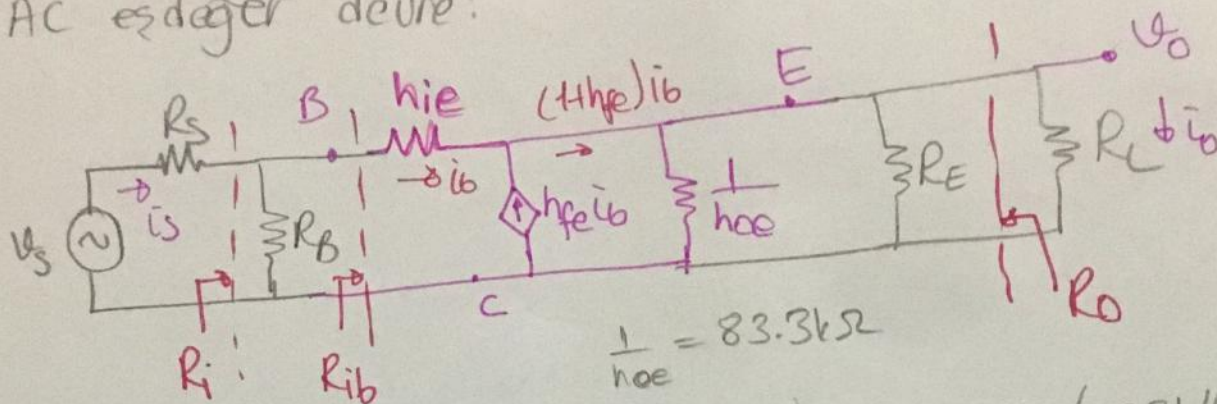 AC eşdeğer devre.
Rs B hie (1+hfe)ib E vo
is ib RL io
vs RB hfeib 1/hoe RE
C
Ri Rib 1/hoe = 83.3kΩ Ro